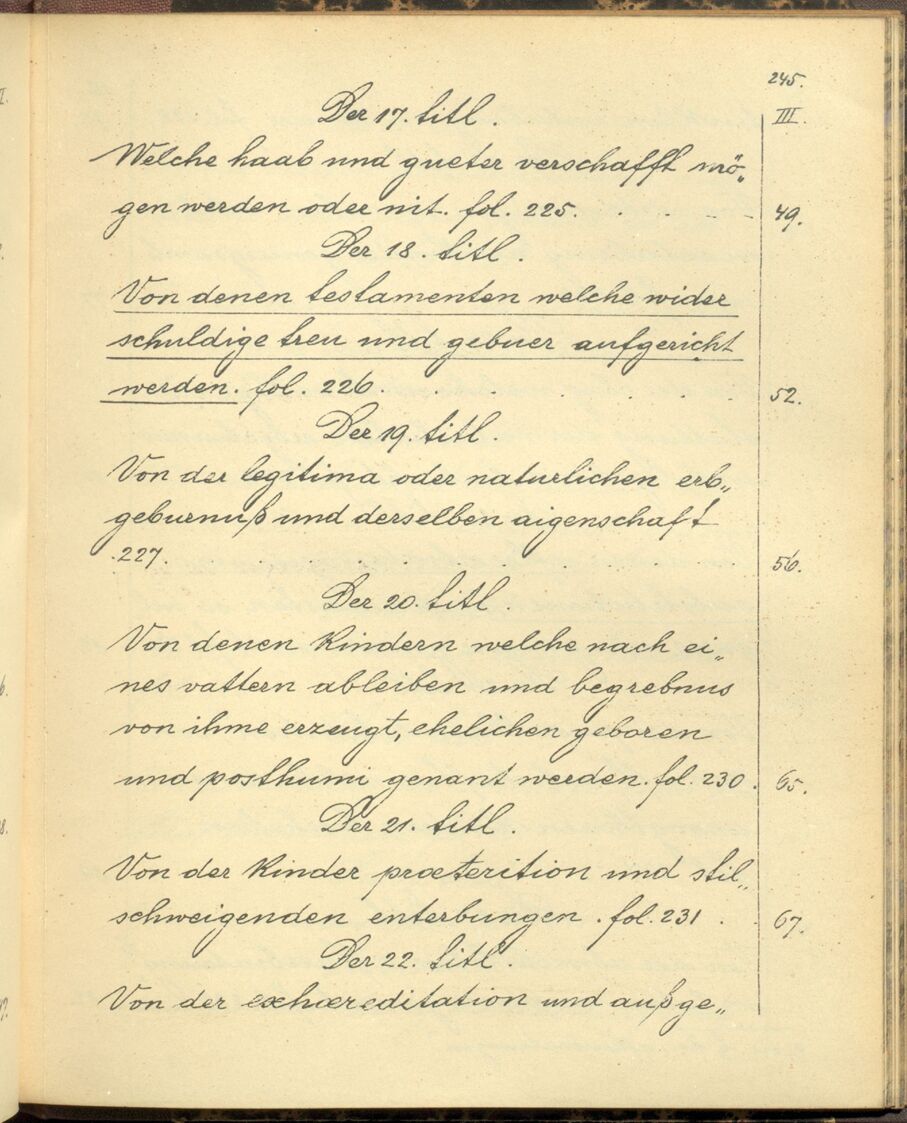 245.
Der 17. titl.
III.
Welche haab und gueter verschafft mö„
gen werden oder nit. fol. 225. . . . . 49.
Der 18. titl.
Von denen testamenten welche wider
schuldige treu und gebuer aufgericht
werden. fol. 226. . . . . . 52.
Der 19. titl.
Von der legitima oder naturlichen erb„
geburnuß und derselben aigenschaft
.227. . . . . . 56.
Der 20. titl
Von denen Kindern welche nach ei„
nes vattern ableiben und begrebnus
von ihme erzeugt, ehelichen geboren
und posthumi genant werden. fol. 230. 65.
Der 21. titl.
Von der Kinder præterition und stil„
schweigenden enterbungen. fol. 231 . . 67.
Der 22. titl.
Von der exhæreditation und außge„